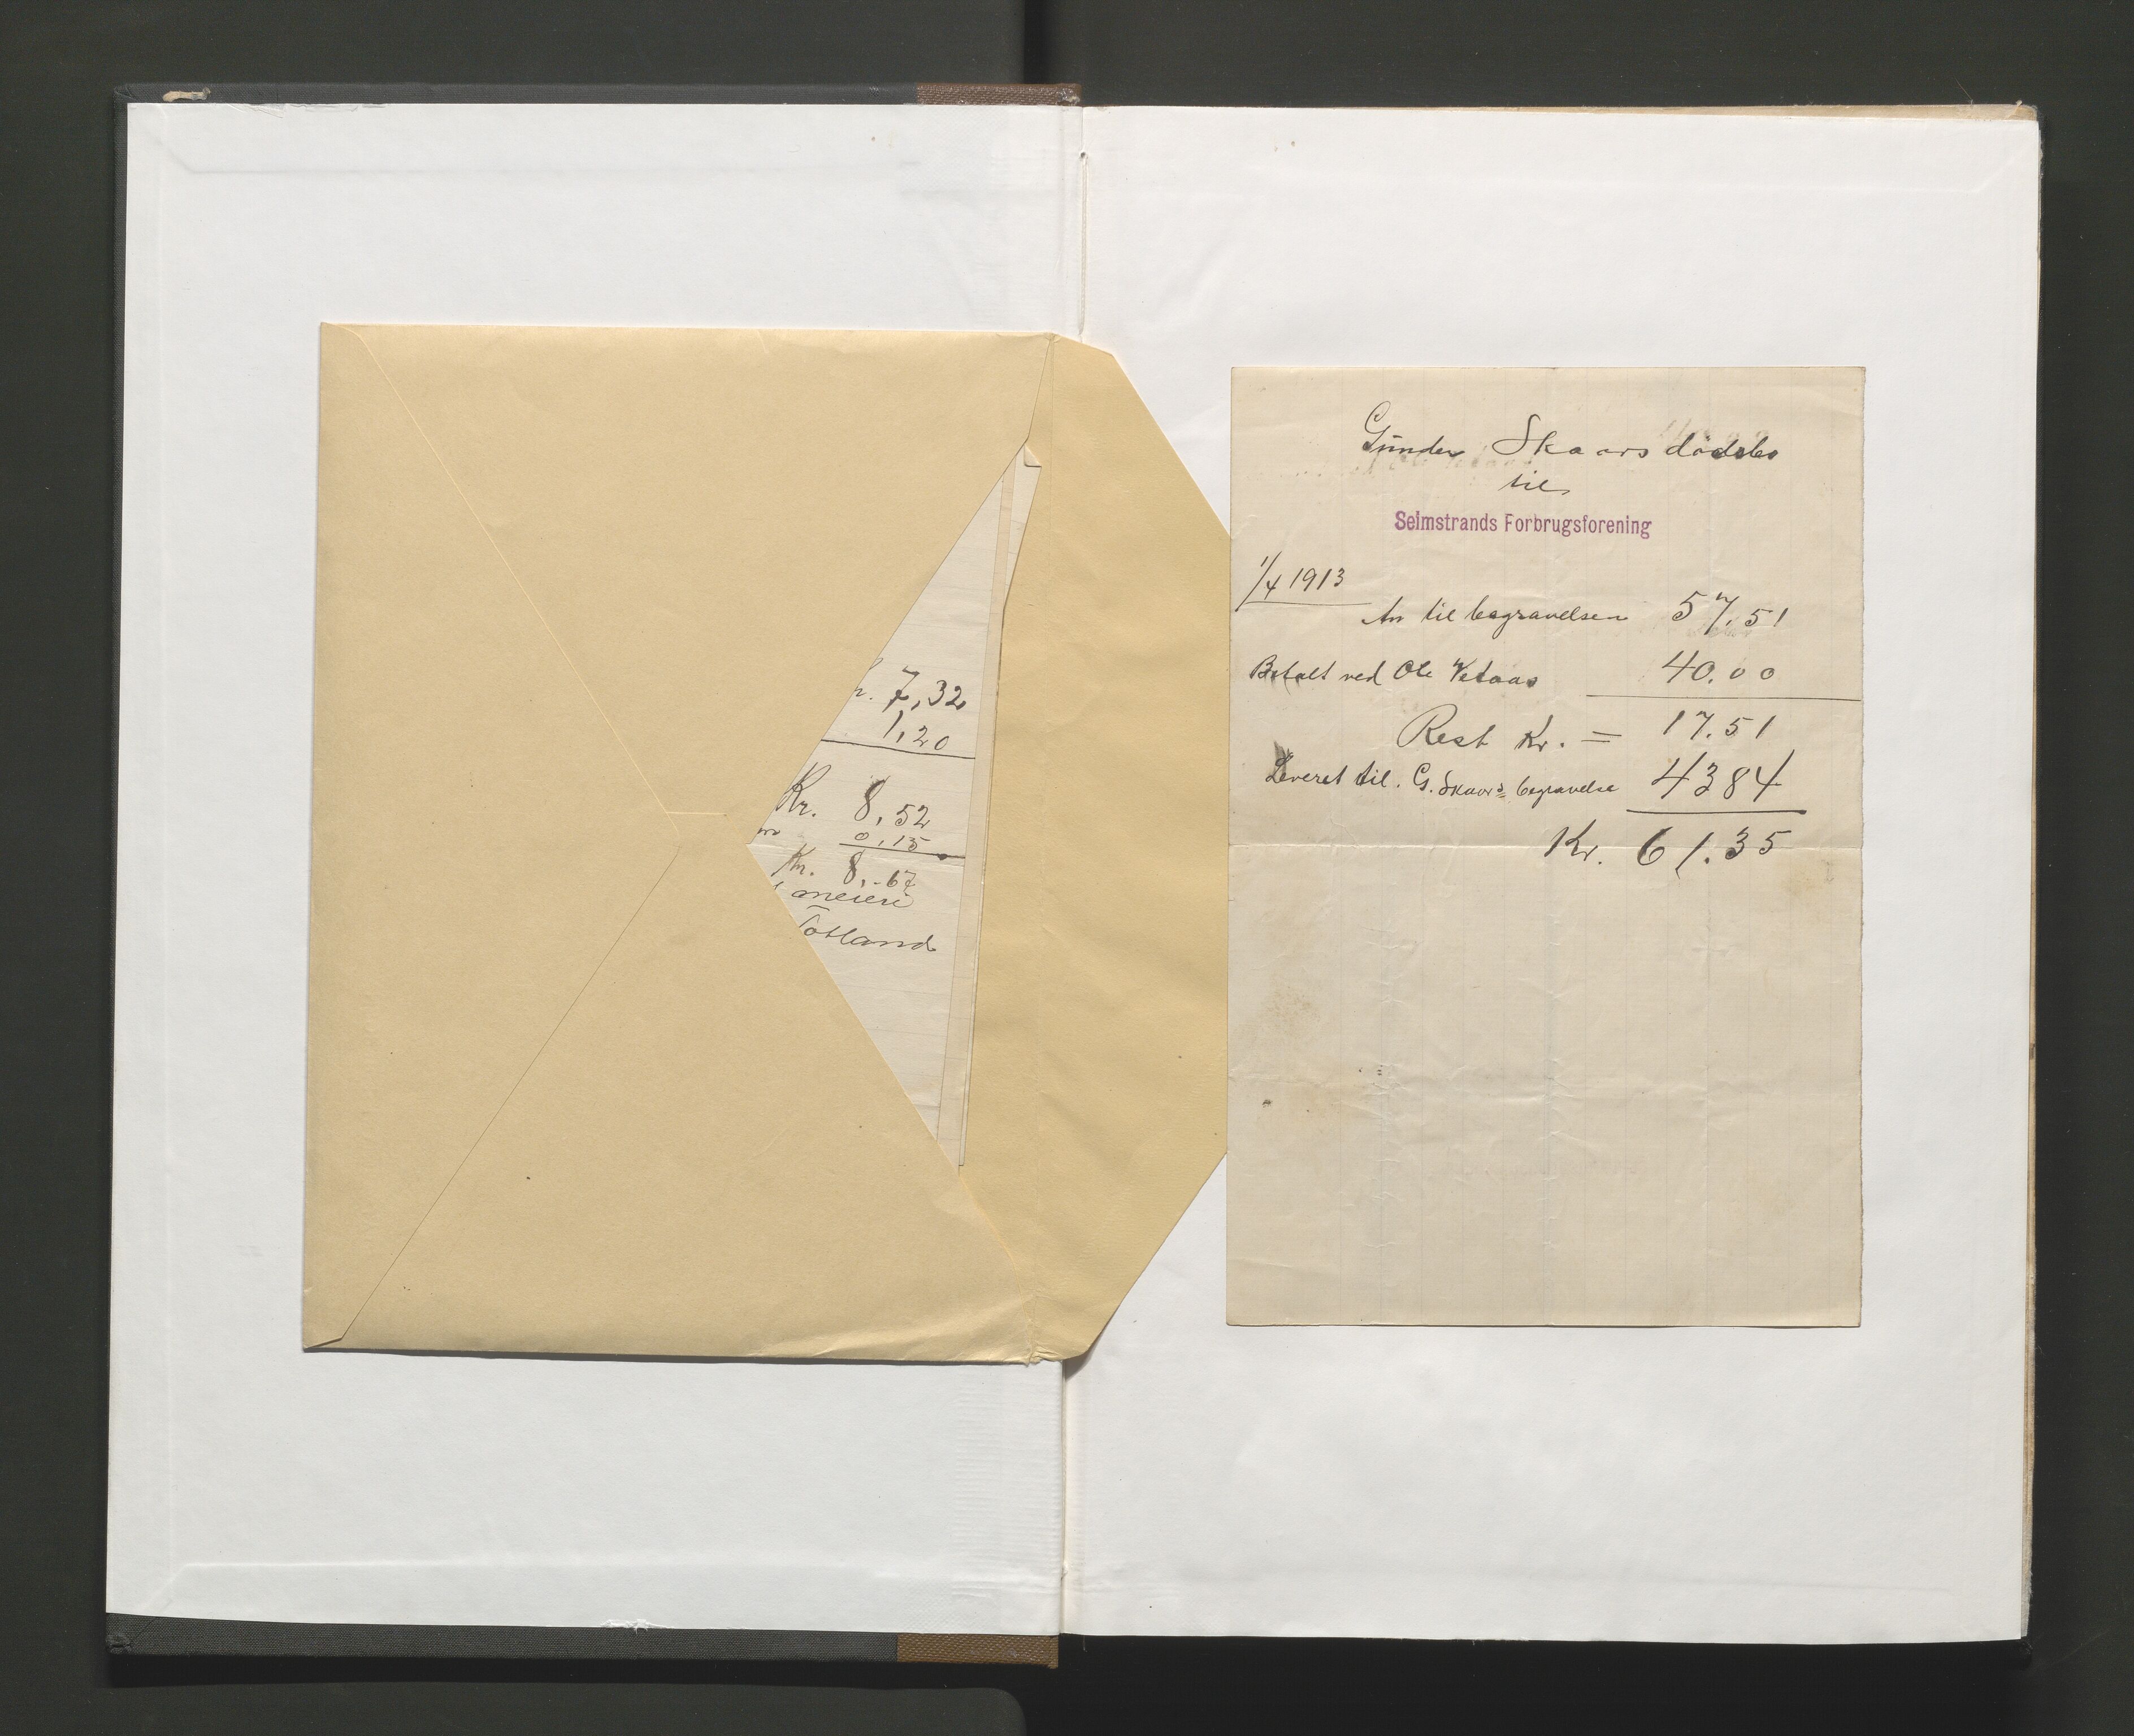 7,32
1,20
Kr. 8,52
0,15
Kr. 8,67
meieri
Totland
Gunder Skaars dødsbo
til
Seimstrands Forbrugsforening
1/4 1913
An til begravelsen 57.51
Betalt ved Ole Vetaas 40.00
Rest Kr. = 17.51
Leveret til G. Skaars begravelse 4384
Kr. 61.35